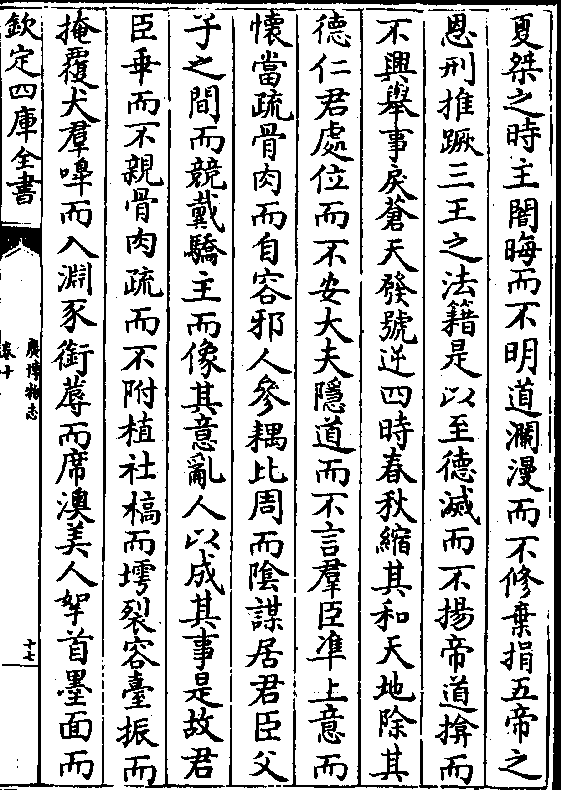 夏桀之時主闇晦而不明道瀾漫而不修棄捐五帝之
恩刑推蹶三王之法籍是以至德滅而不揚帝道揜而
不興舉事戾蒼天發號逆四時春秋縮其和天地除其
德仁君處位而不安大夫隱道而不言羣臣準上意而
懷當疏骨肉而自容邪人參耦比周而陰謀居君臣父
子之間而競戴驕主而像其意亂人以成其事是故君
臣乖而不親骨肉疏而不附植社槁而㙤裂容臺振而
掩覆犬羣嘷而入淵豕銜蓐而席澳美人挐首墨面而
欽定四庫全書
廣博物志
卷十
十七